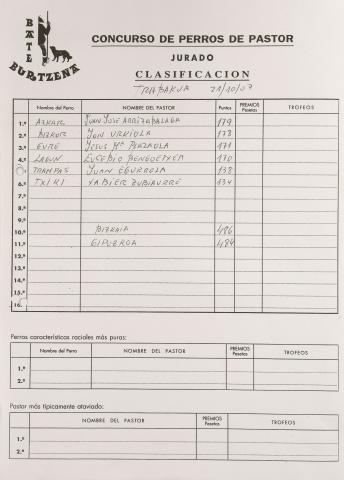 BATE
BURTZENA
CONCURSO DE PERROS DE PASTOR
JURADO
CLASIFICACION
TRABAKUA 21/10/07
Nombre del Perro NOMBRE DEL PASTOR Puntos PREMIOS Pesetas TROFEOS
1.º AZKAR JUAN JOSÉ ARRIZABALAGA 179
2.º BIZKOR JON URKIOLA 178
3.º EURE JESUS Mª PERZAOLA 171
4.º LAGUN EUSEBIO BENGOETXEA 170
TRAMPAS JUAN EGURROLA 138
6.º TXIKI XABIER ZUBIAURRE 134
7.º
8.º
9.º
10.º BIZKAIA 486
11.º GIPUZKOA 484
12.º
13.º
14.º
15.º
16.º
Perros característicos raciales más puros:
Nombre del Perro NOMBRE DEL PASTOR PREMIOS Pesetas TROFEOS
1.º
2.º
Pastor más típicamente ataviado:
NOMBRE DEL PASTOR PREMIOS Pesetas TROFEOS
1.º
2.º